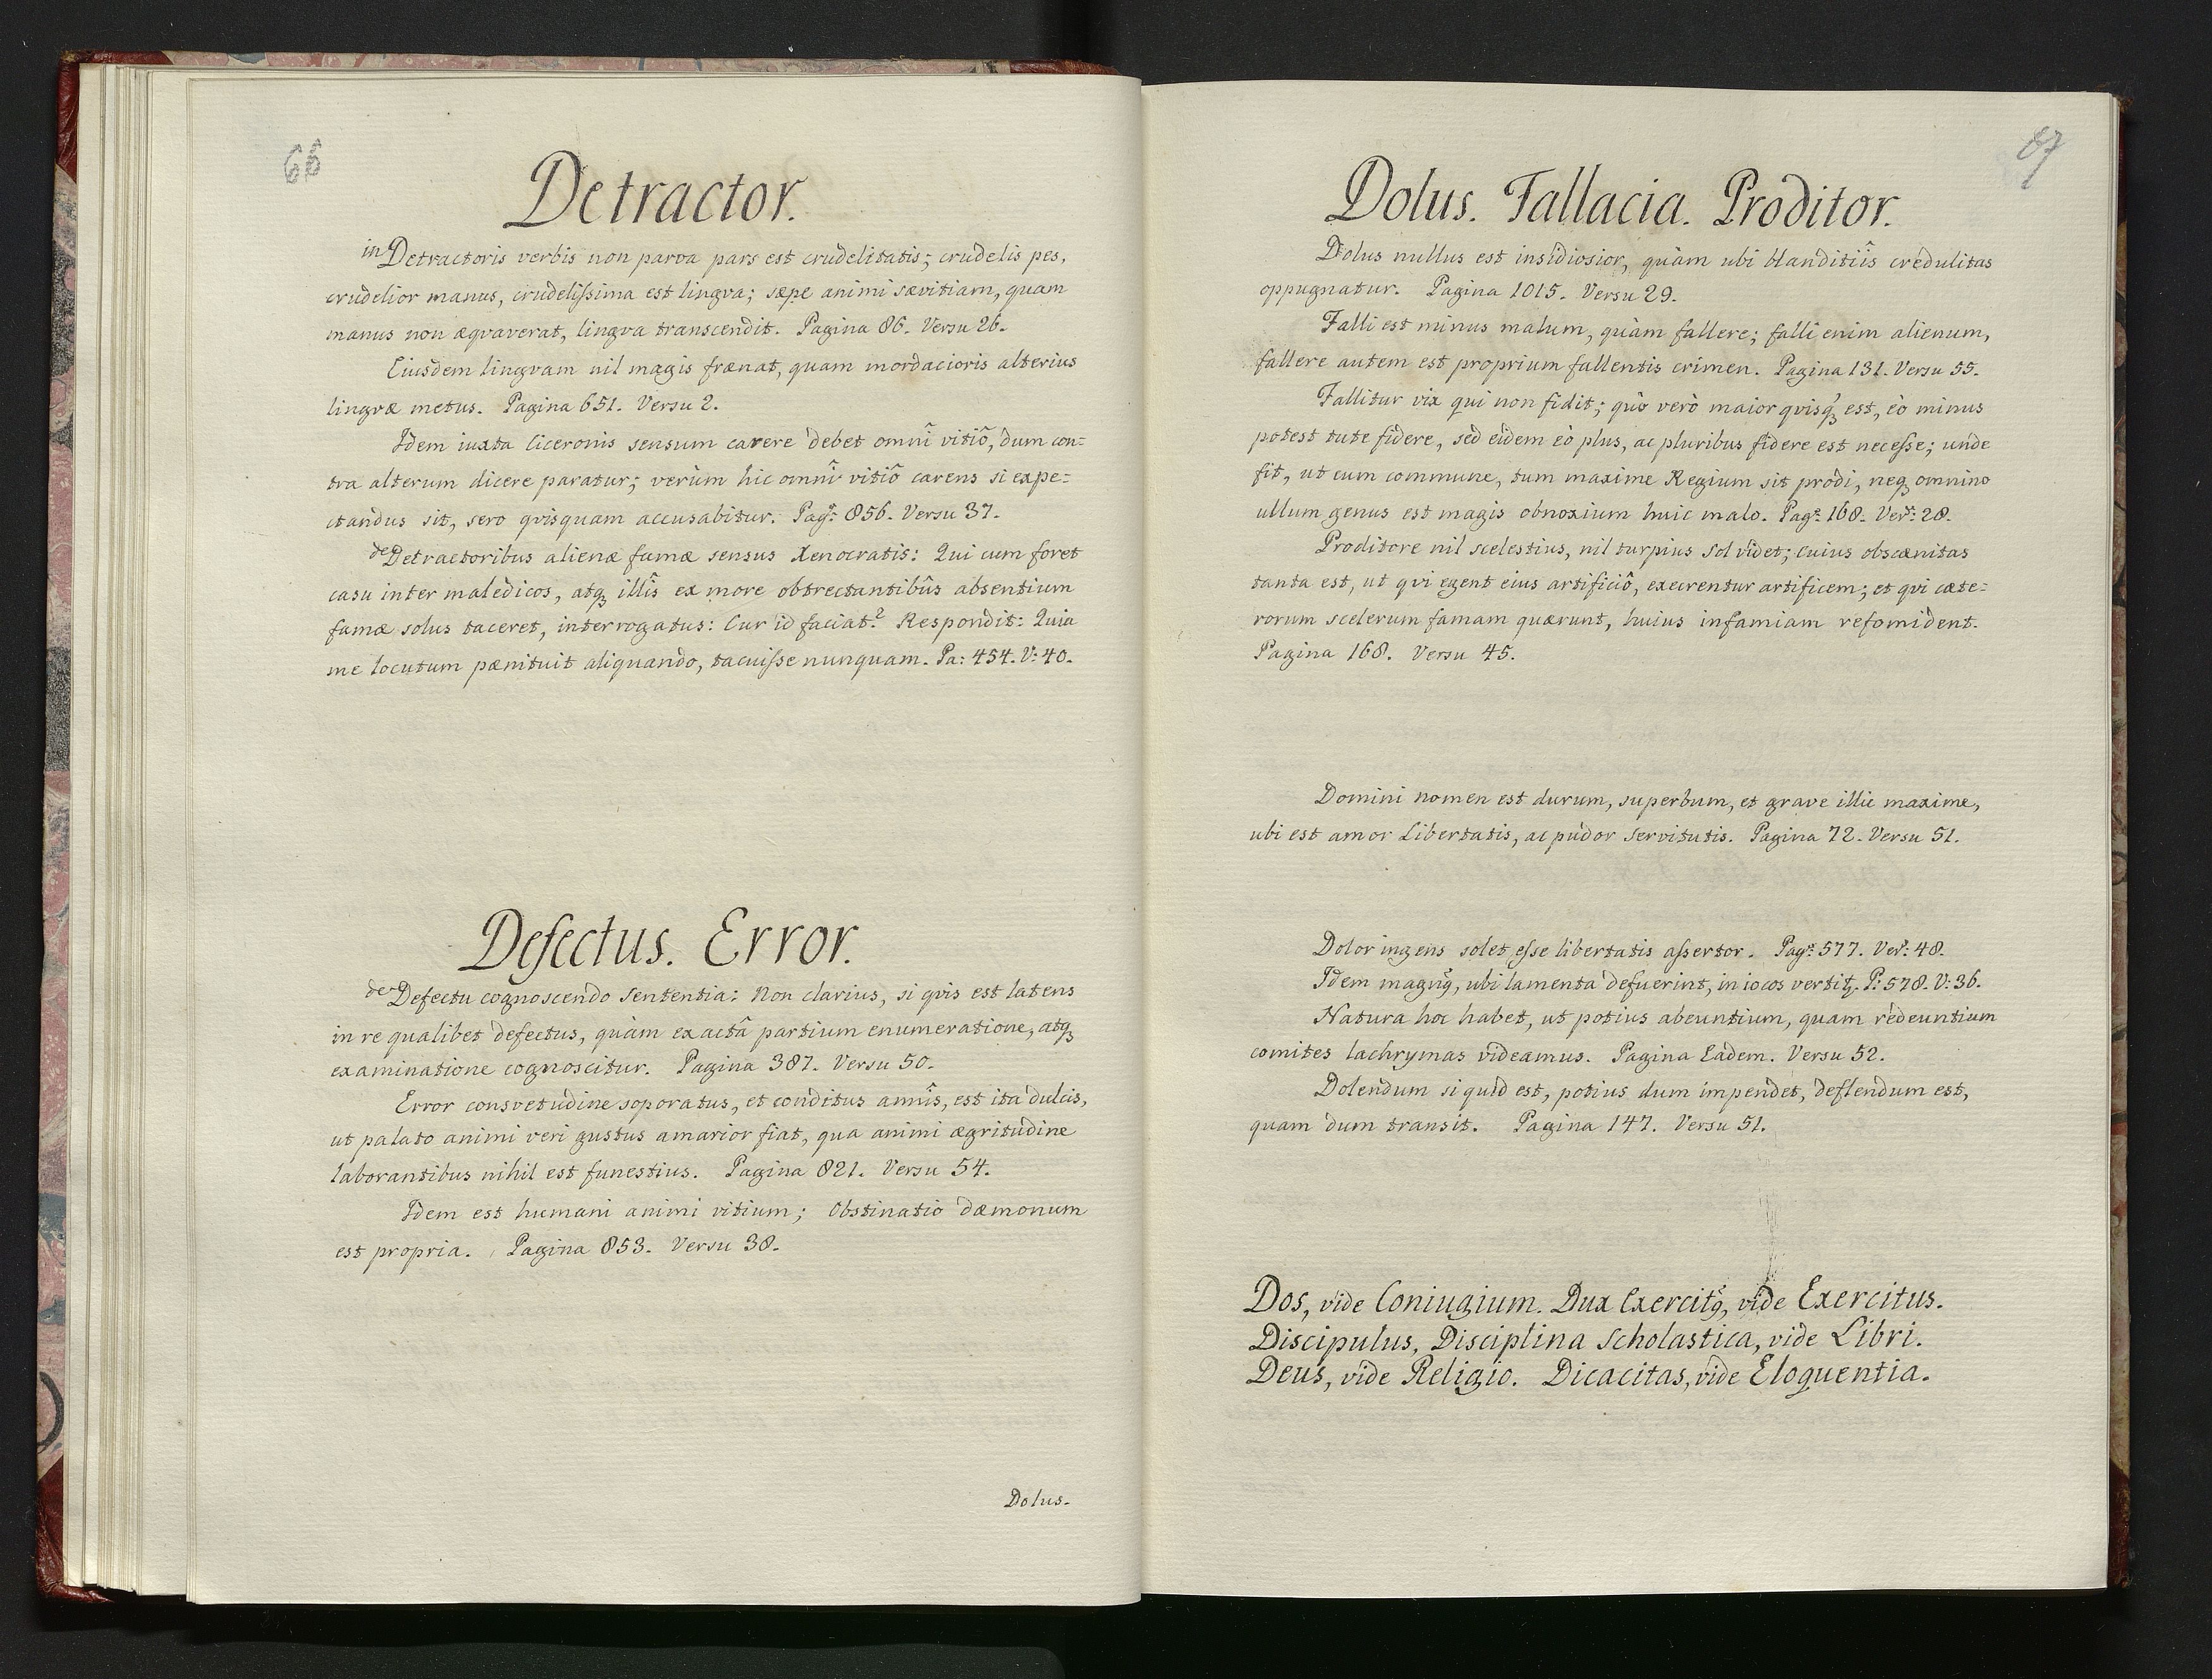 66
Detractor.
in Detractoris verbis non parva pars est crudelitatis; crudelis pes,
crudelior manus, crudelissima est lingva; sæpe animi sævitiam, quam
manus non æqvaverat, lingva transcendit. Pagina 86. Versu 26.
Eiusdem lingvam nil magis frænat, quam mordacioris alterius
lingvæ metus. Pagina 651. Versu 2.
Idem iuxta Ciceronis sensum carere debet omnî vitiô, dum con=
tra alterum dicere paratur; verùm hic omnî vitiô carens si expe=
ctandus sit, sero qvisquam accusabitur. Pagª: 856. Versu 37.
de Detractoribus alienæ famæ sensus Xenocratis: Qui cum foret
casu inter maledicos, atqꝫ illîs ex more obtrectantibûs absentium
famæ solus taceret, interrogatus: Cur id faciat? Respondit: Quia
me locutum pænituit aliquando, tacuisse nunquam. Pa: 454. V: 40.
Defectus. Error.
de Defectu cognoscendo Sententia: Non clarius, si qvis est latens
in re qualibet defectus, quàm exactâ partium enumeratione, atqꝫ
examinatione cognoscitur. Pagina 387. Versu 50.
Error consvetudine soporatus, et conditus annîs, est ita dulcis,
ut palato animi veri gustus amarior fiat, qua animi ægritudine
laborantibus nihil est funestius. Pagina 821. Versu 54.
Idem est humani animi vitium; Obstinatio dæmonum
est propria. Pagina 853. Versu 38.
Dolus.
67
Dolus. Fallacia. Proditor.
Dolus nullus est insidiosior, quàm ubi blanditiîs credulitas
oppugnatur. Pagina 1015. Versu 29.
Falli est minus malum, quàm fallere; falli enim alienum,
fallere autem est proprium fallentis crimen. Pagina 131. Versu 55.
Fallitur vix qui non fidit; quò verò maior qvisqꝫ est, eò minus
potest tute fidere, sed eidem eò plus, ac pluribus fidere est necesse; unde
fit, ut cum commune, tum maxime Regium sit prodi, neqꝫ omnino
ullum genus est magis obnoxium huic malo. Pagª: 168. Verˢ: 28.
Proditore nil scelestius, nil turpius Sol videt; cuius obscænitas
tanta est, ut qvi egent eius artificiô, execrentur artificem; et qvi cæte=
rorum scelerum famam quærunt, huius infamiam refomident.
Pagina 168. Versu 45.
Domini nomen est durum, superbum, et grave illic maxime,
ubi est amor Libertatis, ac pudor Servitutis. Pagina 72. Versu 51.
Dolor ingens solet esse libertatis assertor. Pagª: 577. Verˢ: 48.
Idem magnꝰ, ubi lamenta defuerint, in iocos vertitꝫ. P: 578. V: 36.
Natura hoc habet, ut potius abeuntium, quam redeuntium
comites lachrymas videamus. Pagina Eadem. Versu 52.
Dolendum si quid est, potius dum impendet, deflendum est,
quam dum transit. Pagina 147. Versu 51.
Dos, vide Coniugium. Dux Exercitꝰ, vide Exercitus.
Discipulus, Disciplina Scholastica, vide Libri.
Deus, vide Religio. Dicacitas, vide Eloquentia.